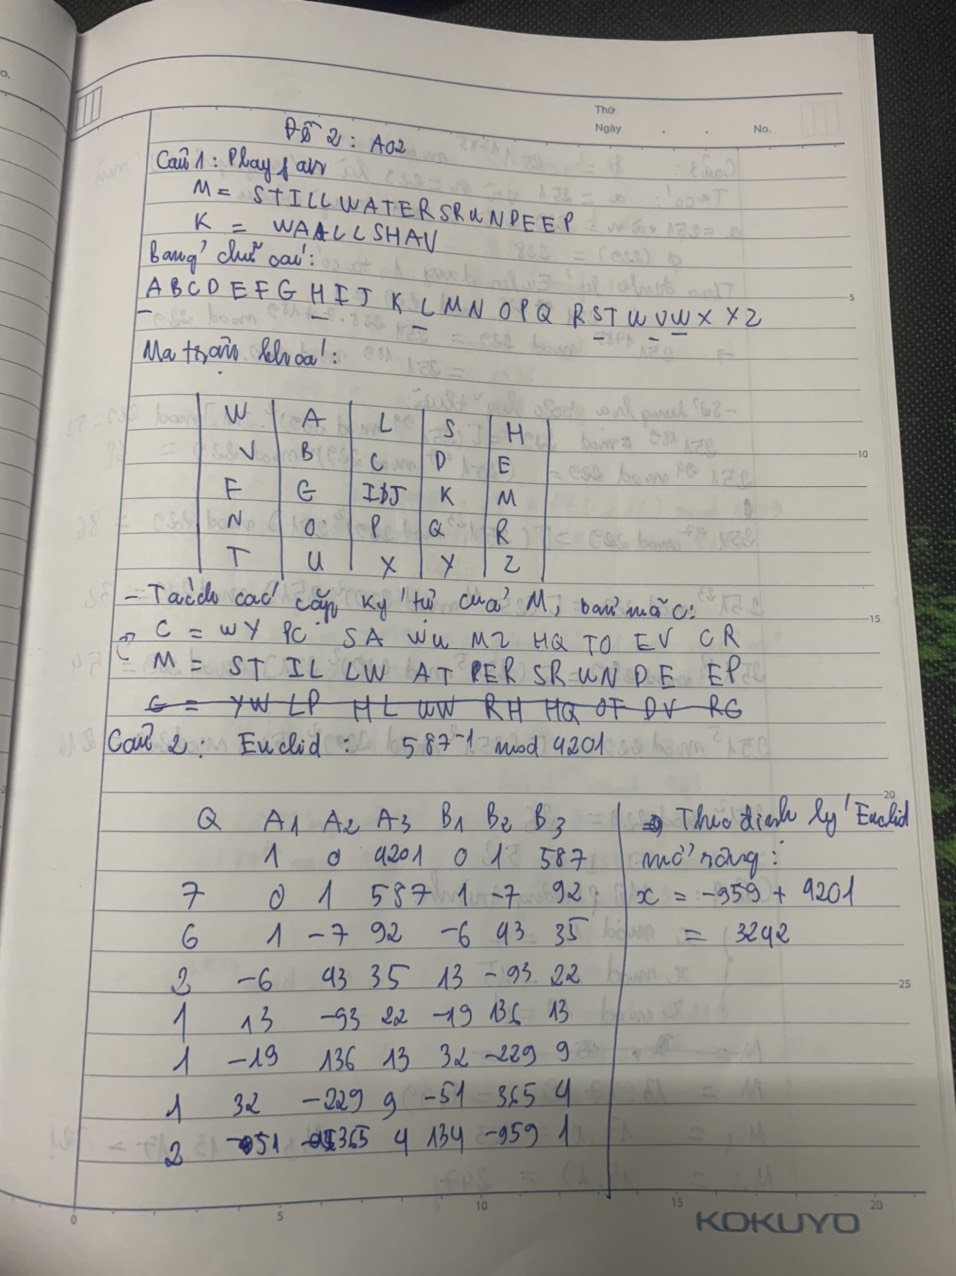 Thứ
Ngày . . No.
Đề 2: A02
Câu 1: Playfair
M = STILLWATERSRUNDEEP
K = WAALLSHAV
Bảng chữ cái:
A B C D E F G H I J K L M N O P Q R S T U V W X Y Z
5
Ma trận khoá:
W A L S H
V B C D E
10
F G I/J K M
N O P Q R
T U X Y Z
- Tách các cặp ký tự của M, bản mã C:
15
C = WY PC SA WU MZ HQ TO EV CR
M = ST IL LW AT ER SR UN DE EP
C = YW LP HL UW RH HQ OT DV RG
Câu 2: Euclid: 587⁻¹ mod 4201
20
Q A1 A2 A3 B1 B2 B3 => Theo định lý Euclid
1 0 4201 0 1 587 mở rộng:
7 0 1 587 1 -7 92 x = -959 + 4201
6 1 -7 92 -6 43 35 = 3242
2 -6 43 35 13 -93 22
25
1 13 -93 22 -19 136 13
1 -19 136 13 32 -229 9
1 32 -229 9 -51 365 4
2 -51 365 4 134 -959 1
0 5 10 15 20
KOKUYO